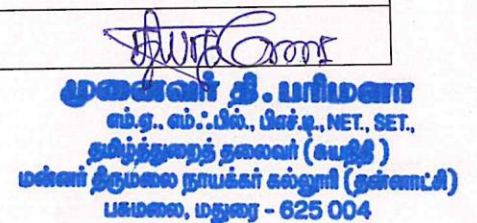 முனைவர் தி. பரிமளா
எம்.ஏ., எம்.ஃபில்., பிஎச்.டி., NET., SET.,
தமிழ்த்துறைத் தலைவர் (சுயநிதி)
மன்னர் திருமலை நாயக்கர் கல்லூரி (தன்னாட்சி)
பசுமலை, மதுரை - 625 004